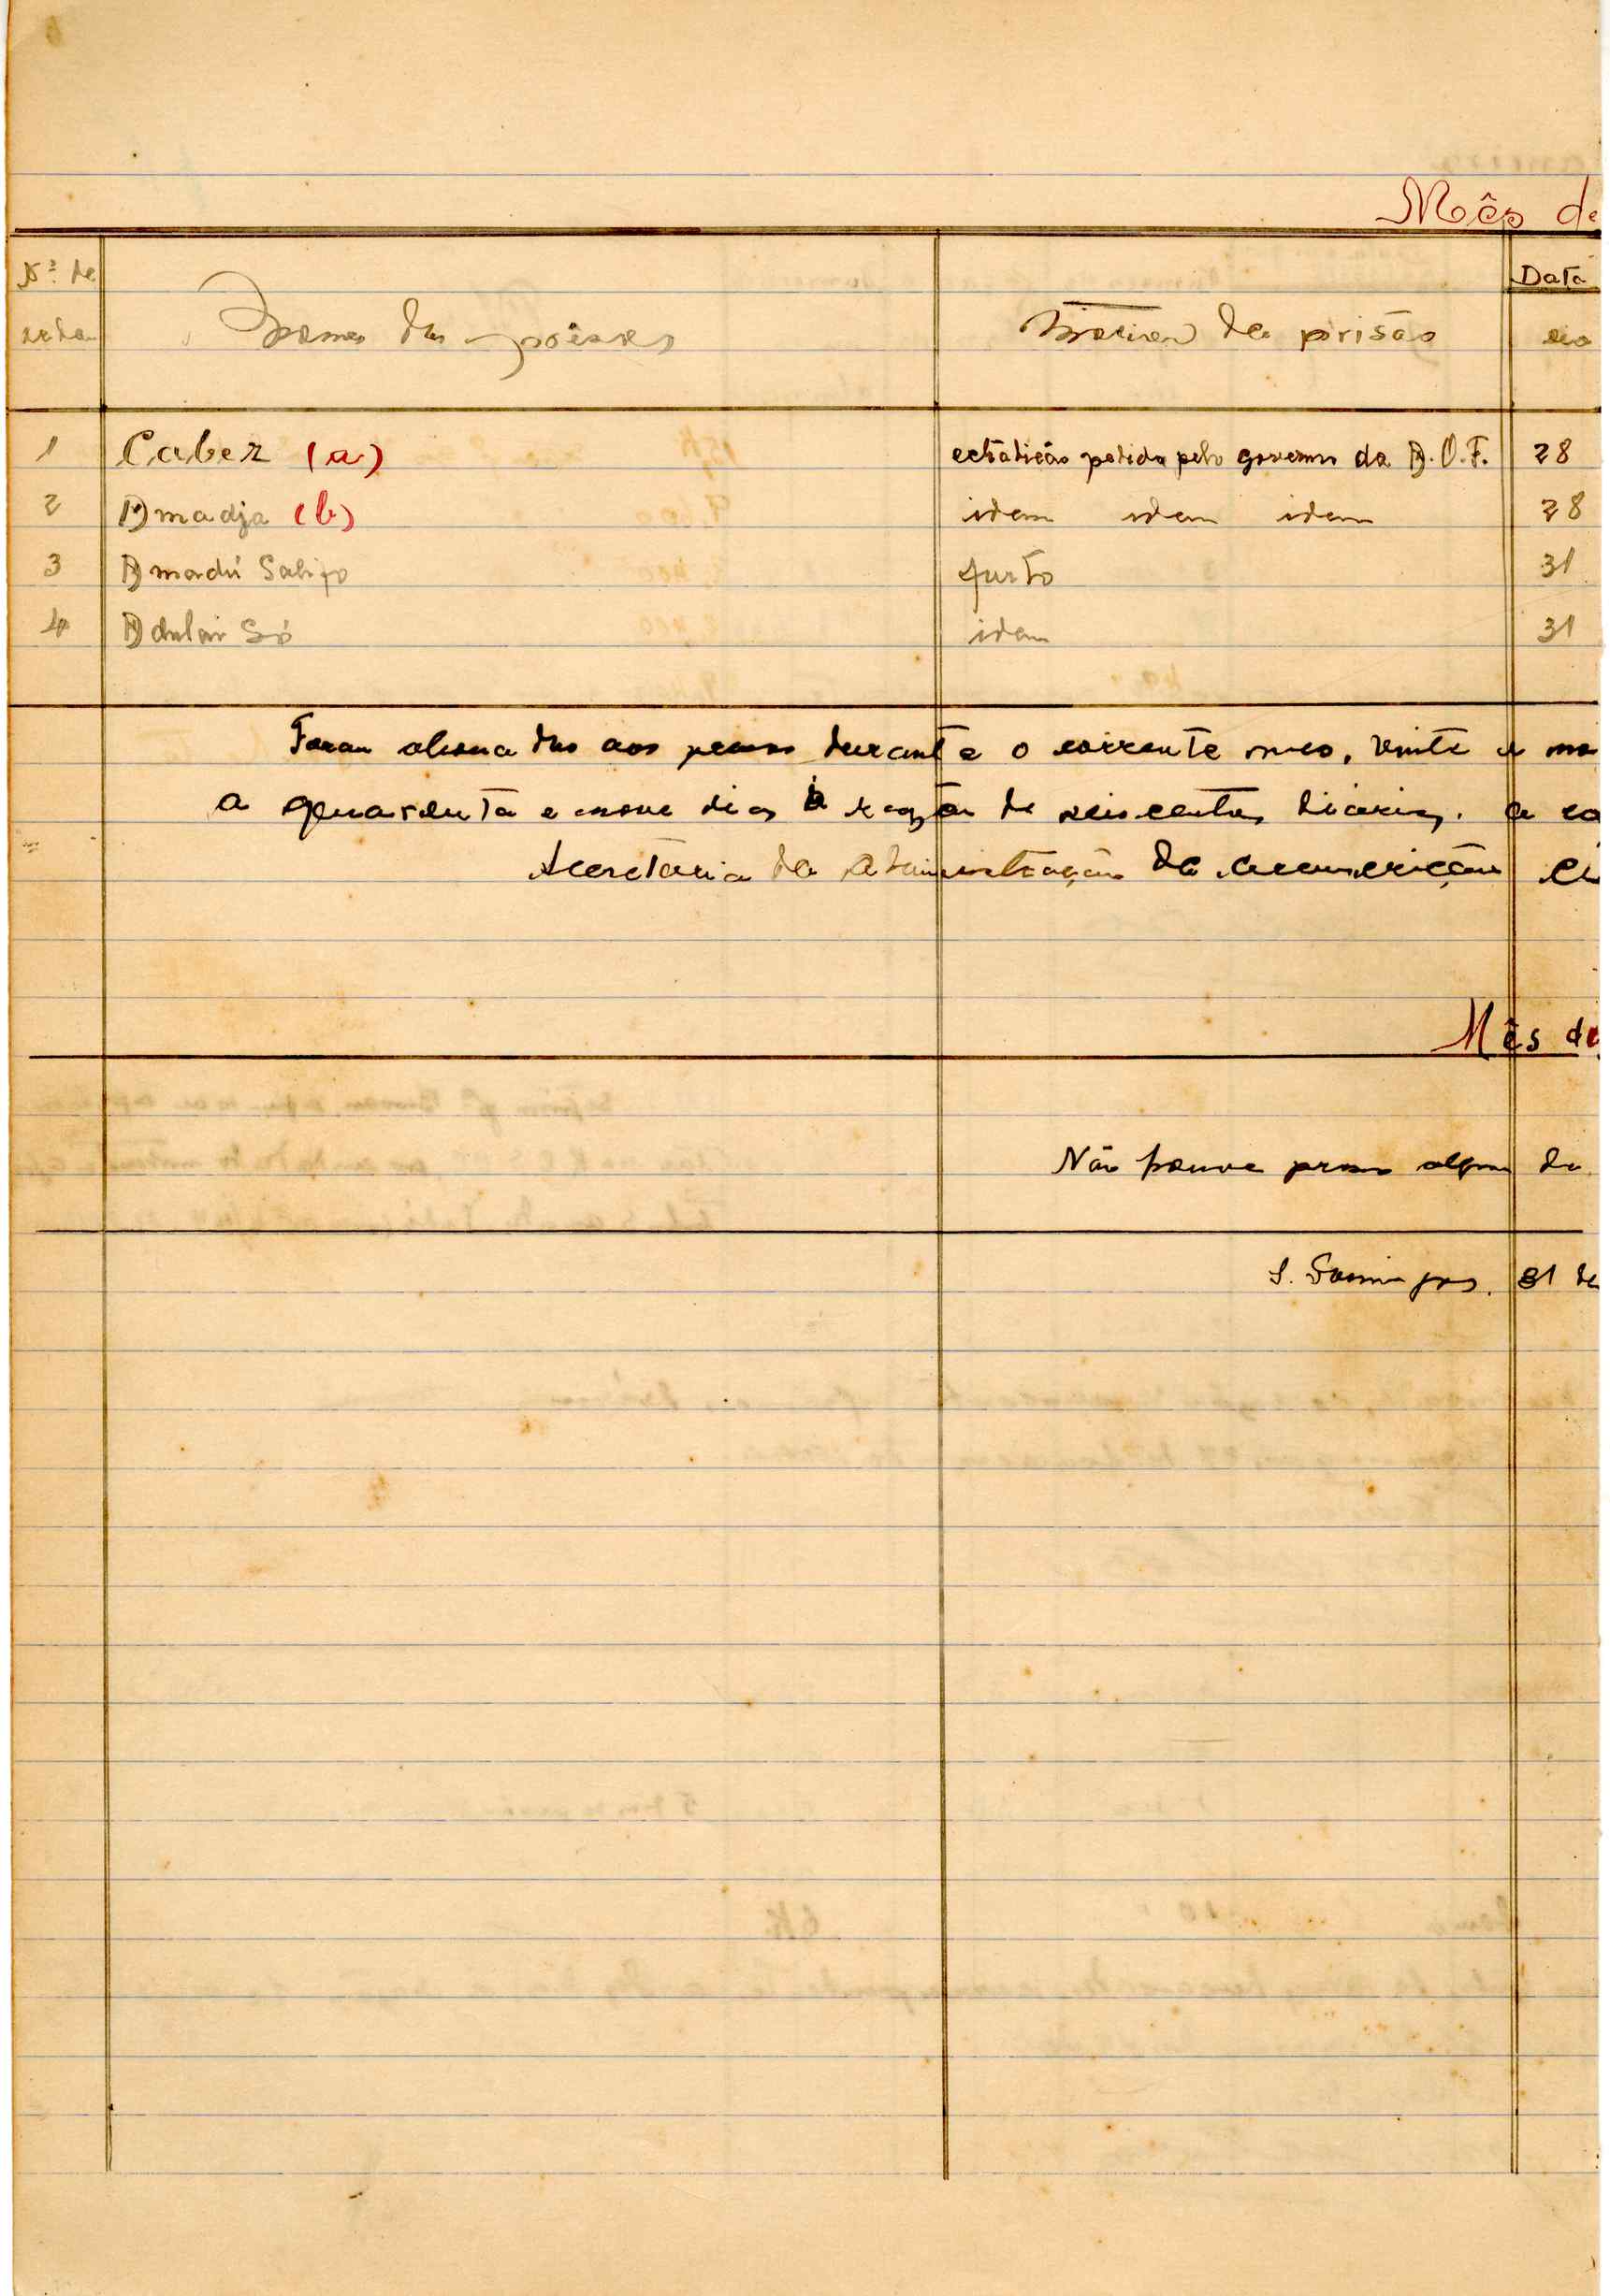 Mês de
Nº de Data
ordem Nomes dos prêsos Motivo da prisão da
1 Caber (a) ectradição pedida pelo governo da A.O.F. 28
2 Amadja (b) idem idem idem 28
3 Amadú 31
furto
4 Só idem 31
Foram abonados aos presos durante o corrente mes, vinte e
a quarenta e nove dias à razão de seiscentas diárias. a
Secretaria da Administração da circunscrição
Mês de
Não houve preso algum
S. Domingos. 31 de